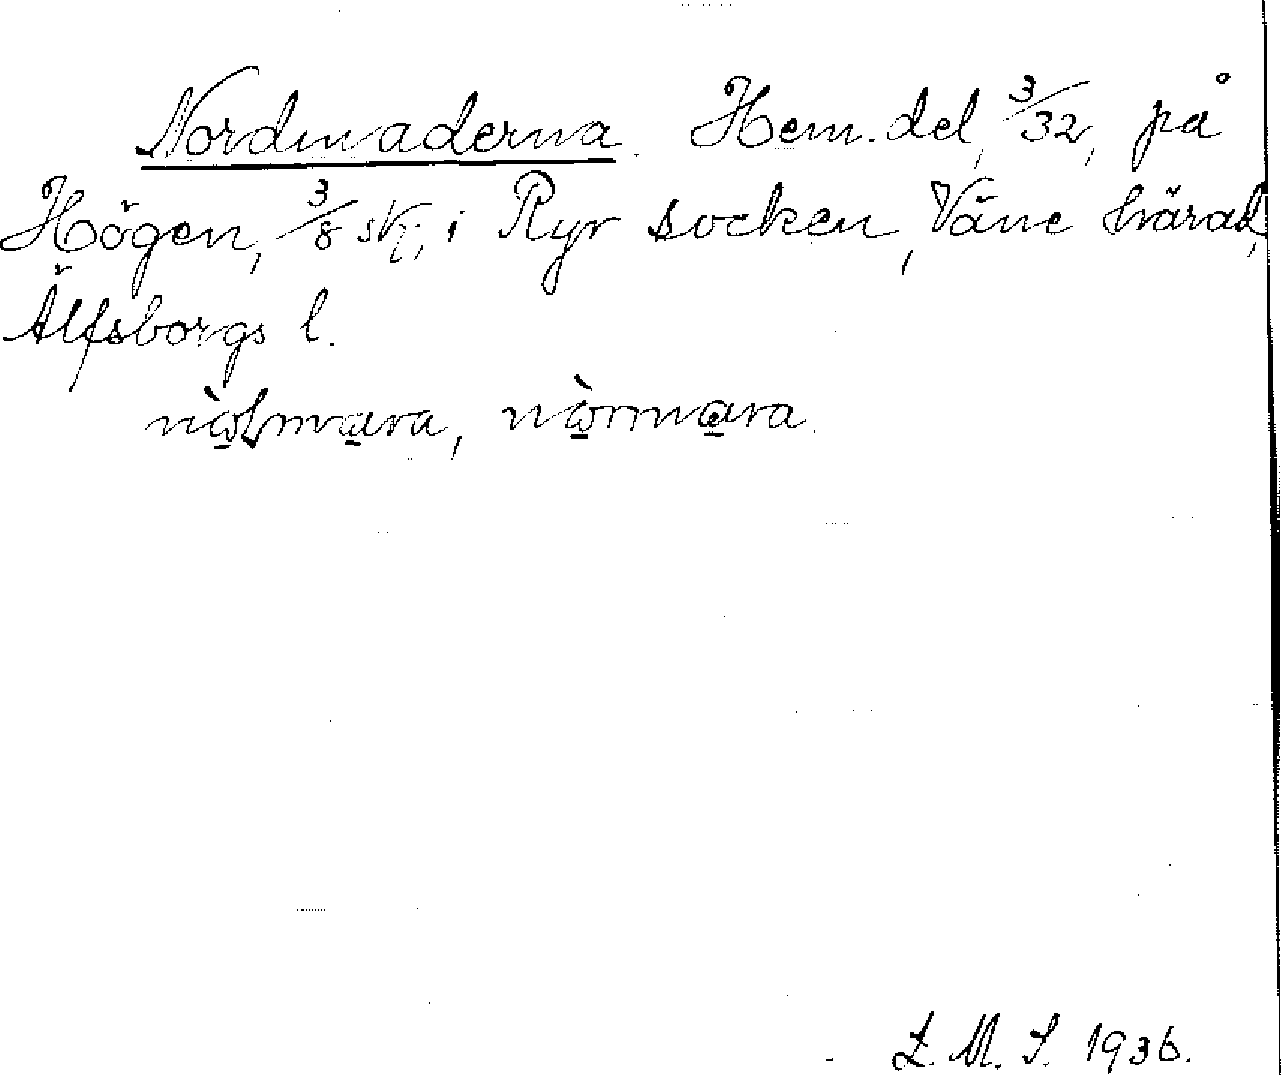 Nordmaderna. Hem. del, 3/32, på
Högen, 3/8 skj; i Ryr socken, Väne härad,
Älfsborgs l.
nò̱ɫma̱ra, nò̱rma̱ra.
L. M. S. 1936.